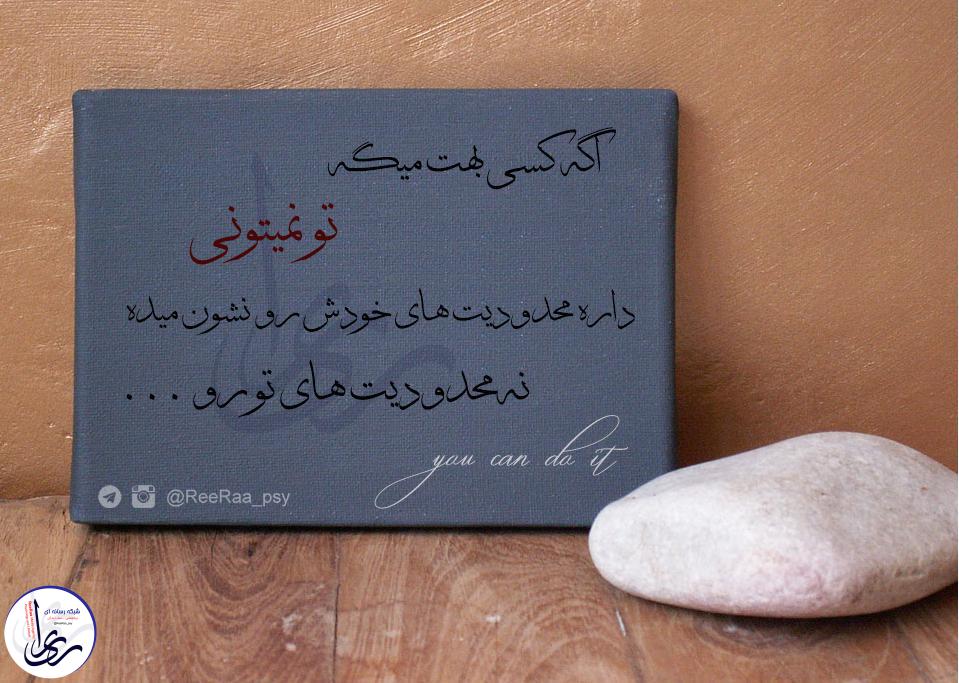 اگه کسی بهت میگه
تو نمیتونی
داره محدودیت های خودش رو نشون میده
نه محدودیت های تو رو ...
you can do it
@ReeRaa_psy
شبکه رسانه ای
ری را